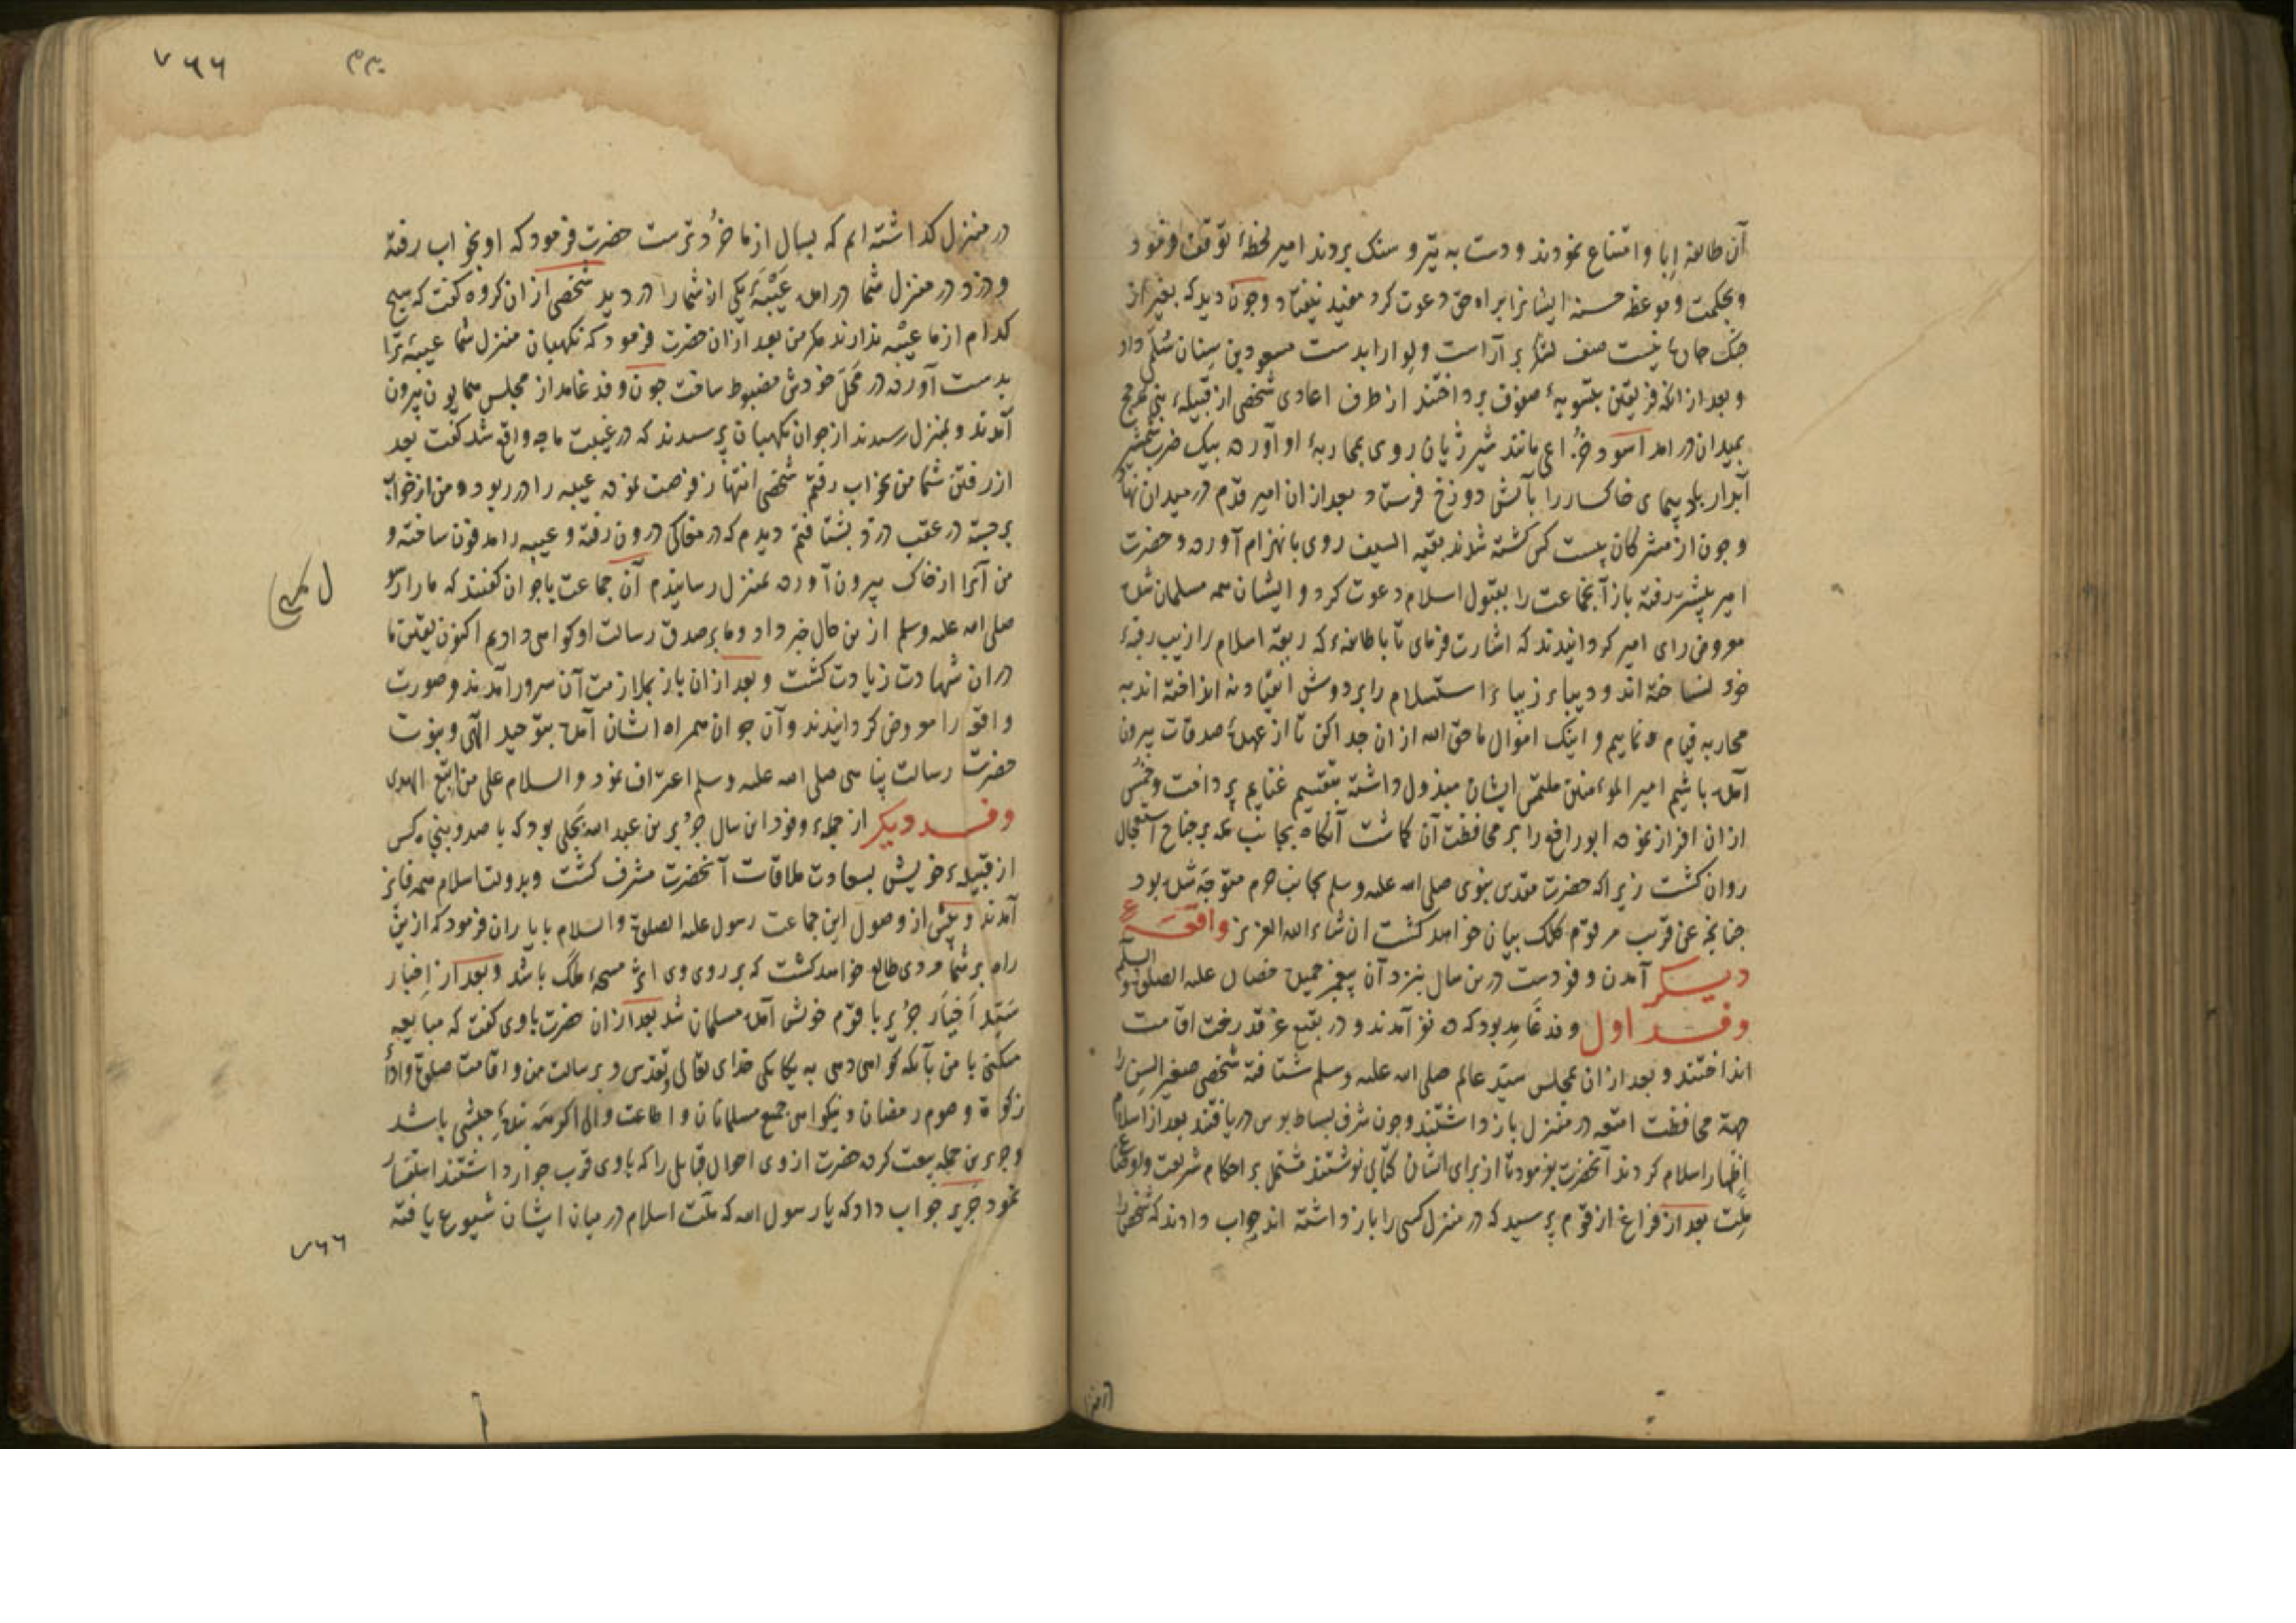 آن طایفه اِبا و امتناع نمودند و دست به تیر و سنک بردند امیر لحظهٔ توقف فرمود
و بحکمت و موعظه حسنه ایشانرا براه حق دعوت کرد مفید نیفتاد و چون دید که بغیر از
جنک چاره نیست صف لشکر بر آراست و لوا را بدست مسعود بن سِنان سُلَمی داد
و بعد از انکه فریقین بتسویهٔ صفوف پرداختند از طرف اعادی شخصی از قبیلهٔ بنی مذحج
بمیدان در امد اسود خُزاعی مانند شیر ژیان روی بمحاربهٔ او آورده بیک ضرب شمشیر
آبدار باد پیمای خاکسار را بآتش دوزخ فرستاد بعد از ان امیر قدم در میدان نهاد
و چون از مشرکان بیست کس کشته شدند بقیه السیف روی بانهزام آورده و حضرت
امیر پیشتر رفته باز آنجماعت را بقبول اسلام دعوت کرد و ایشان همه مسلمان شده
معروض رای امیر کردانیدند که اشارت فرمای تا با طایفهٔ که ربقهٔ اسلام را زیب رقبهٔ
خود نساخته اند و دیباء زیباء استسلام را بر دوش انقیاد نه انداخته اند به
محاربه قیام نماییم و اینک اموال ما حق الله از ان جدا کن تا از عهدهٔ صدقات بیرون
آمده باشیم امیر المومنین ملتمس ایشان مبذول داشته بتقسیم غنایم پرداخت و خمس
از ان افراز نموده ابو رافع را بر محافظت آن کماشت آنکاه بجانب مکه بر جناح استعجال
روان کشت زیرا که حضرت مقدس نبوی صلی الله علیه وسلم بجانب حرم متوجه شده بود
چنانچه عن قریب مرقوم کلک بیان خواهد کشت ان شاء الله العزیز واقعهٔ
دیکر آمدن وفودست درین سال بنزد آن پیغمبر جمیده خصال علیه الصلوة والسلم
وفد اول وفد غامِد بود که ده نفر آمدند و در بقیع غرقد رخت اقامت
انداختند و بعد از ان بمجلس سید عالم صلی الله علیه وسلم شتافته شخصی صغیر السِن را
جهة محافظت امتعه در منزل باز داشتند و چون شرف بساط بوس دریافتند بعد از اسلام
اِظهار اسلام کردند آنحضرت بفرمود تا از برای ایشان کتابی نوشتند مشتمل بر احکام شریعت و
ملت بعد از فراغ از قوم پرسید که در منزل کسی را باز داشته اند جواب دادند که شخصی را
در منزل
۷۶۶
در منزل کذاشته ایم که بسال از ما خُردترست حضرت فرمود که او بخواب رفته
و دزد در منزل شما در امده عَیْبَهٔ یکی از شما را دزدید شخصی از ان کروه کفت که هیچ
کدام از ما عیبه ندارند مکر من بعد از ان حضرت فرمود که نکهبان منزل شما عیبهٔ ترا
بدست آورده در مَحَلّ خودش مضبوط ساخت چون وفد غامد از مجلس همایون بیرون
آمدند و بمنزل رسیدند از جوان نکهبان پرسیدند که در غیبت ما چه واقع شد کفت بعد
از رفتن شما من بخواب رفتم شخصی انتهاز فرصت نموده عیبه را در ربود و من از خواب
برجسته در عقب دزد بشتافتم دیدم که در مغاکی درون رفته و عیبه را مدفون ساخته و
من آنرا از خاک بیرون آورده بمنزل رسانیدم آن جماعت با جوان کفتند که ما را رسول
صلی الله علیه وسلم ازین حال خبر داد و ما بر صدق رسالت او کواهی دادیم اکنون یقین ما
در ان شهادت زیادت کشت و بعد از ان باز بملازمت آن سرور آمدند و صورت
واقعه را معروض کردانیدند و آن جوان همراه ایشان آمده بتوحید الهی و نبوت
حضرت رسالت پناهی صلی الله علیه وسلم اعتراف نمود والسلام علی من اتبع الهدی
وفد دیکر از جملهٔ وفود این سال جُریر بن عبد الله بَجَلی بود که با صد و پنجه کس
از قبیلهٔ خویش بسعادت ملاقات آنحضرت مشرف کشت و بدولت اسلام همه فایز
آمدند و پیش از وصول این جماعت رسول علیه الصلوة والسلام با یاران فرمود که ازین
راه بر شما مردی طالع خواهد کشت که بر روی وی اثر مسحهٔ ملک باشد و بعد از اِخبار
سَید اَخیار جُریر با قوم خوش آمده مسلمان شد بعد از ان حضرت با وی کفت که مبایعه
میکنی با من بآنکه کواهی دهی به یکانکی خدای تعالی و تقدس و برسالت من و اقامت صلوة و اداء
زکوة و صوم رمضان و نیکو اهی جمیع مسلمانان و اطاعت والی اکرچه بندهٔ حبشی باشد
و جریر بن جمله بیعت کرده حضرت از وی احوال قبایلی را که با وی قرب جوار داشتند استفسار
نمود جَریر جواب داد که یا رسول الله که ملت اسلام در میان ایشان شیوع یافته
۷۶۶